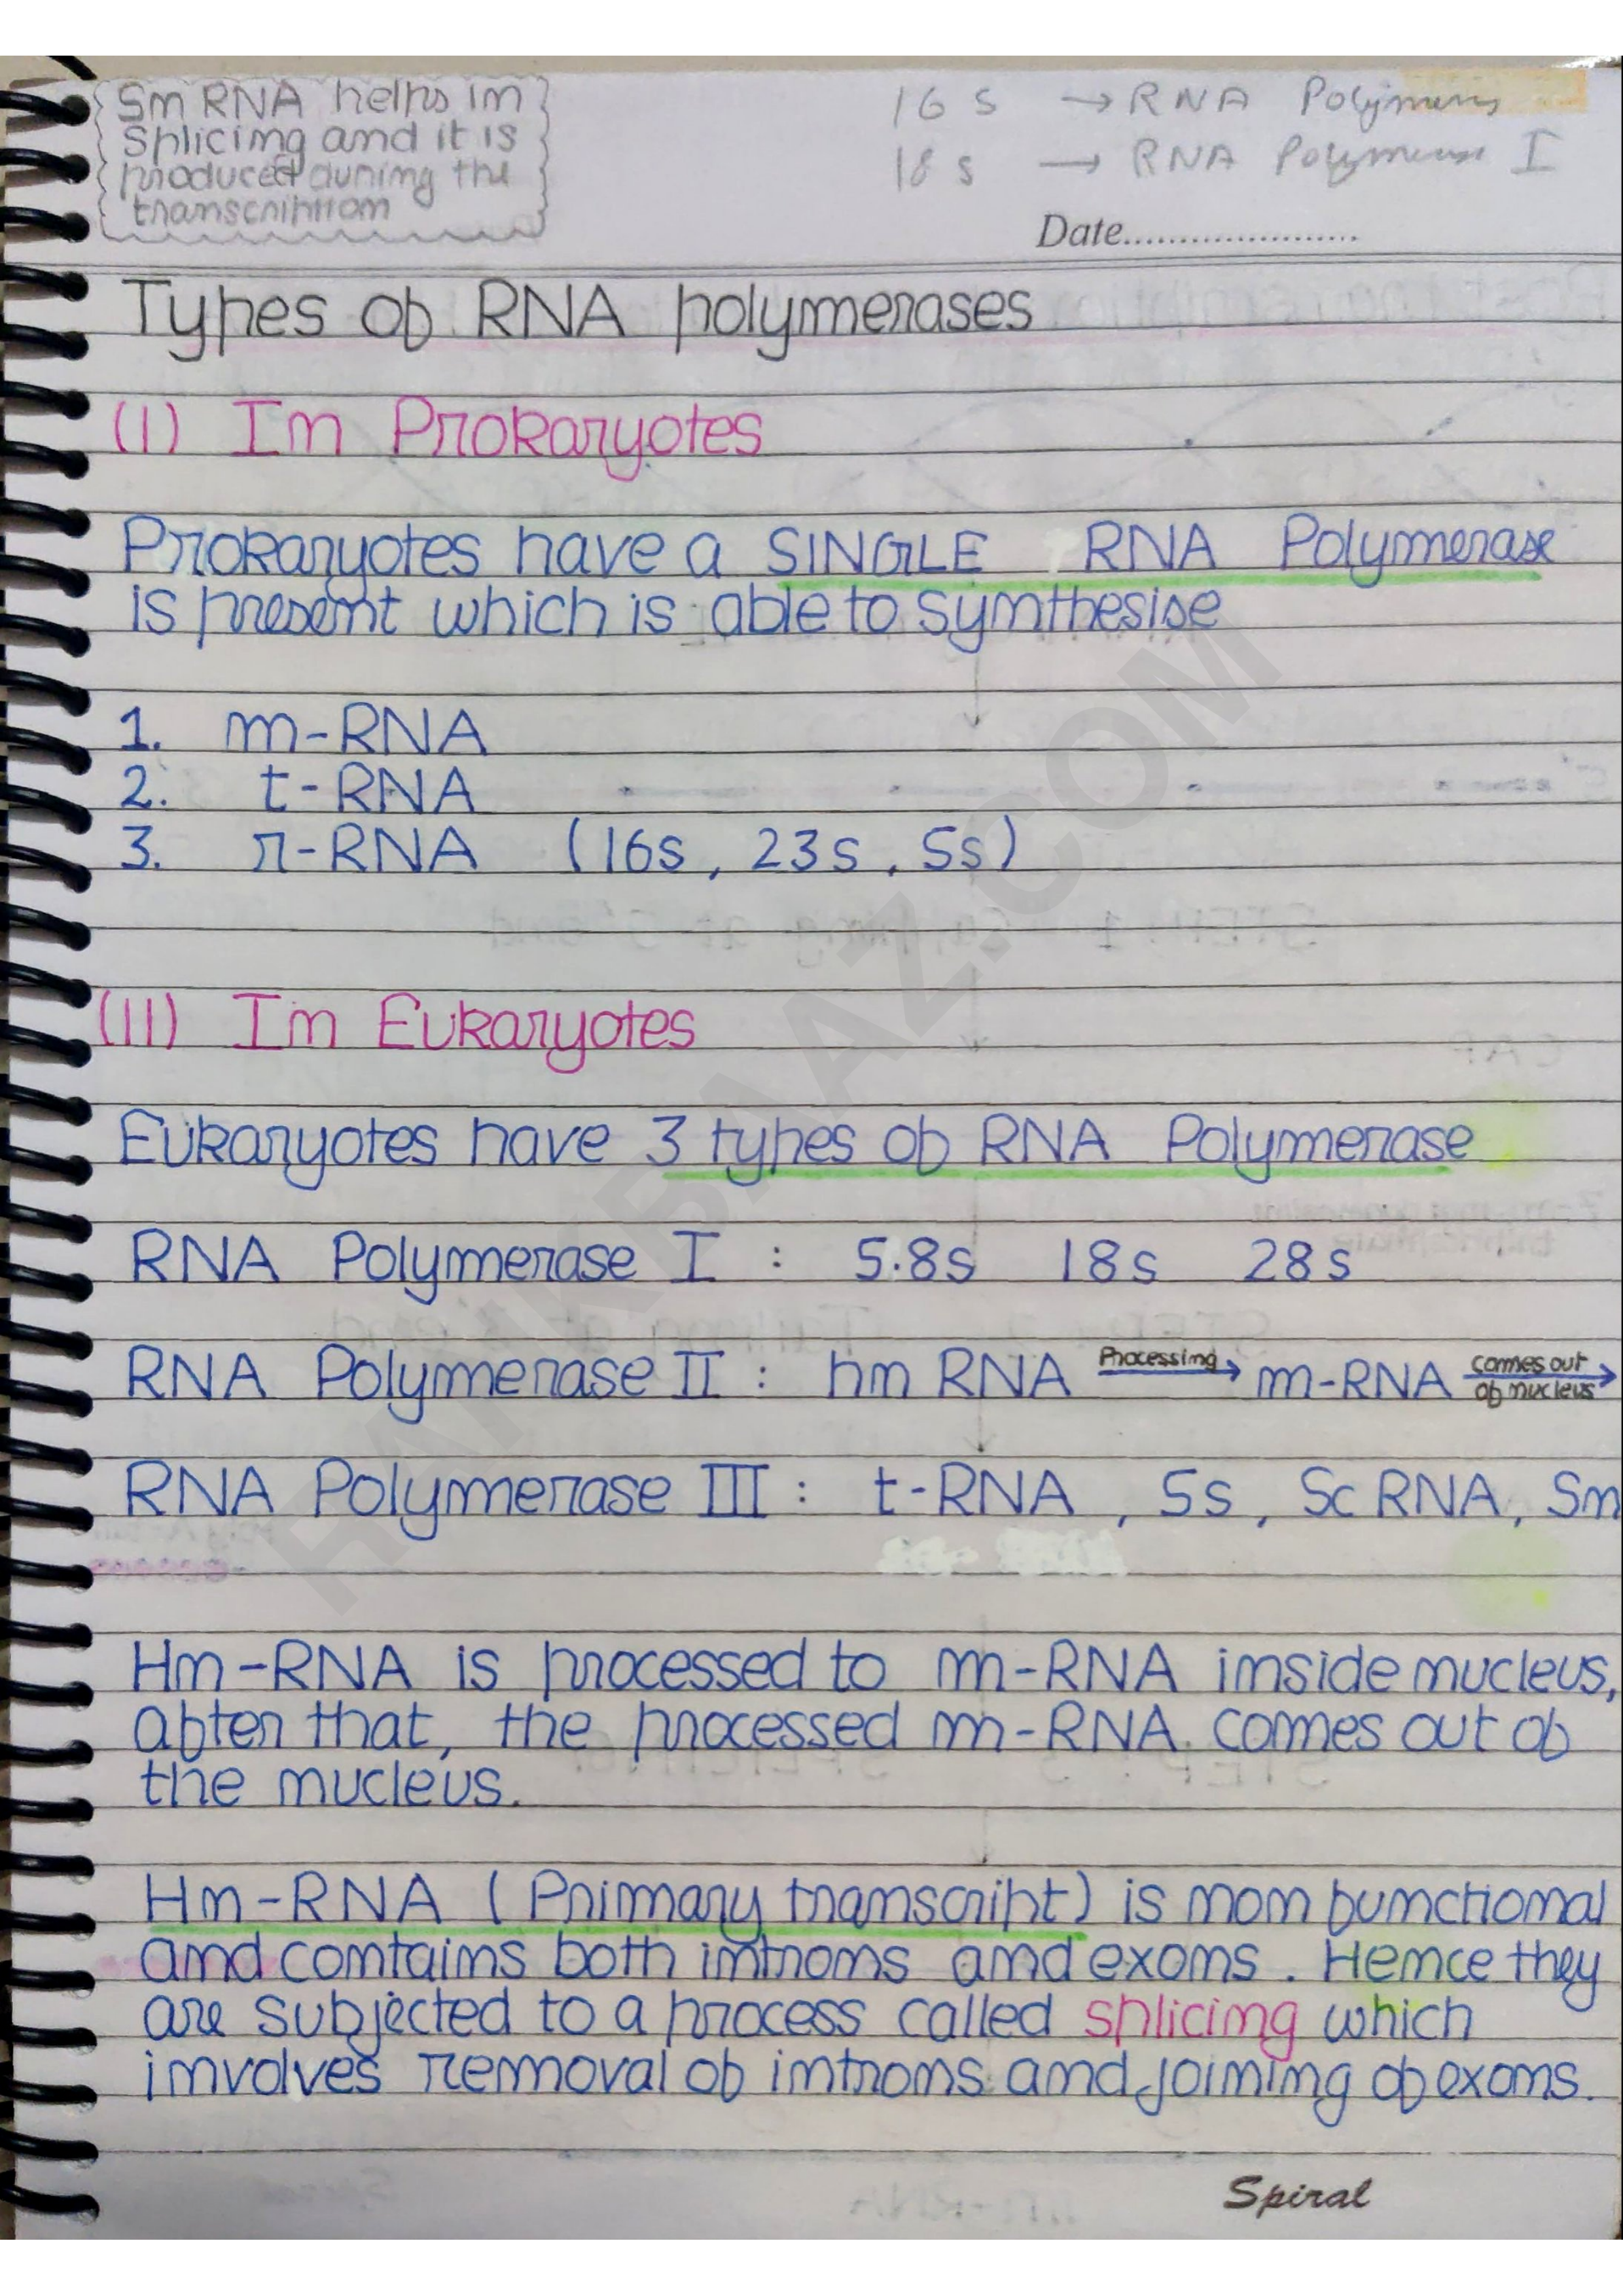 Sn RNA helps in
splicing and it is
produced during the
transcription
16 s → RNA Polymeras
18 s → RNA Polymerase I
Date.....................
Types of RNA polymerases
(I) In Prokaryotes
Prokaryotes have a SINGLE RNA Polymerase
is present which is able to synthesise
1. m-RNA
2. t-RNA
3. r-RNA (16s, 23s, 5s)
(II) In Eukaryotes
Eukaryotes have 3 types of RNA Polymerase
RNA Polymerase I : 5.8s 18s 28s
RNA Polymerase II : hn RNA Processing→ m-RNA comes out of nucleus→
RNA Polymerase III : t-RNA, 5s, Sc RNA, Sn
Hn-RNA is processed to m-RNA inside nucleus,
after that, the processed m-RNA comes out of
the nucleus.
Hn-RNA (Primary transcript) is non functional
and contains both introns and exons. Hence they
are subjected to a process called splicing which
involves removal of introns and joining of exons.
Spiral